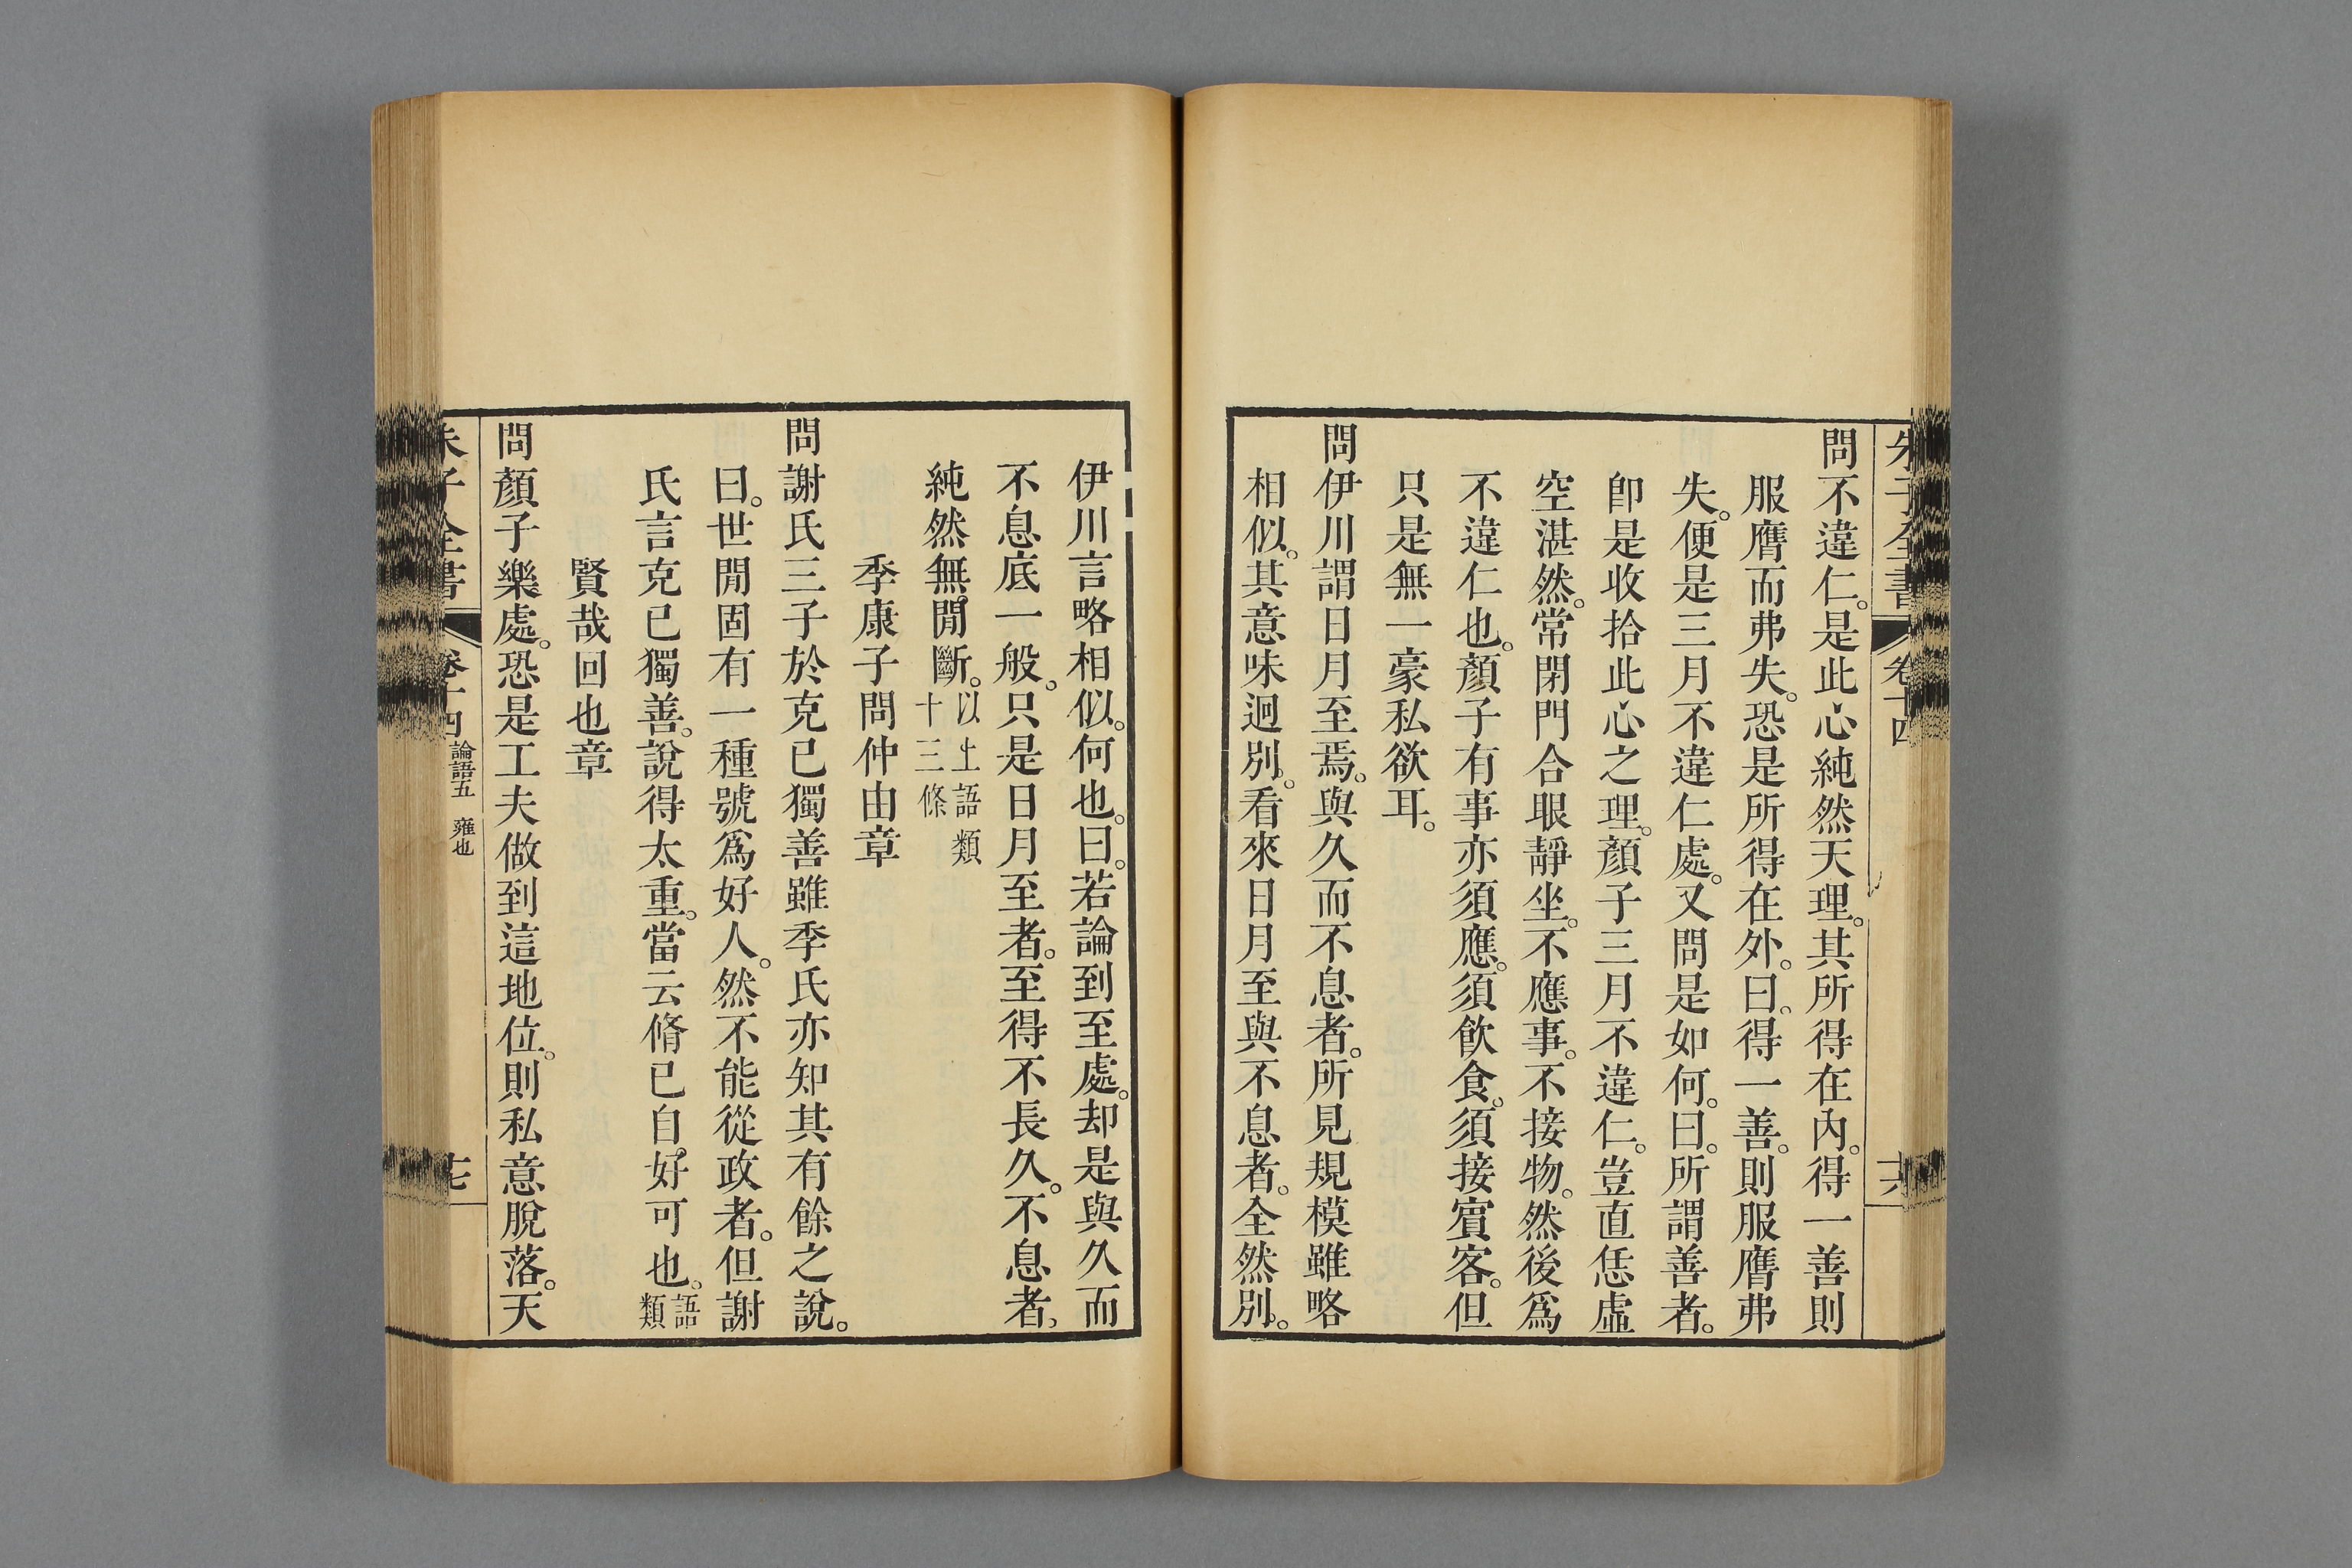 朱子全書 卷十四 十六
問不違仁。是此心純然天理。其所得在內。得一善則
服膺而弗失。恐是所得在外。曰。得一善。則服膺弗
失。便是三月不違仁處。又問是如何。曰。所謂善者。
卽是收拾此心之理。顏子三月不違仁。豈直恁虛
空湛然。常閉門合眼靜坐。不應事。不接物。然後爲
不違仁也。顏子有事亦須應。須飲食。須接賓客。但
只是無一豪私欲耳。
問伊川謂日月至焉。與久而不息者。所見規模雖略
相似。其意味迥別。看來日月至與不息者。全然別。
伊川言略相似。何也。曰。若論到至處。却是與久而
不息底一般。只是日月至者。至得不長久。不息者、
純然無閒斷。以上語類十三條
季康子問仲由章
問謝氏三子於克已獨善雖季氏亦知其有餘之說。
曰。世閒固有一種號爲好人。然不能從政者。但謝
氏言克已獨善。說得太重。當云脩已自好可也。語類
賢哉回也章
問顏子樂處。恐是工夫做到這地位。則私意脫落。天
朱子全書 卷十四 論語五 雍也 十七